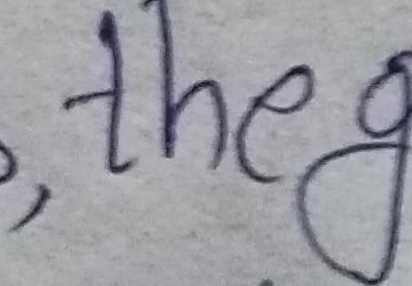 , the g